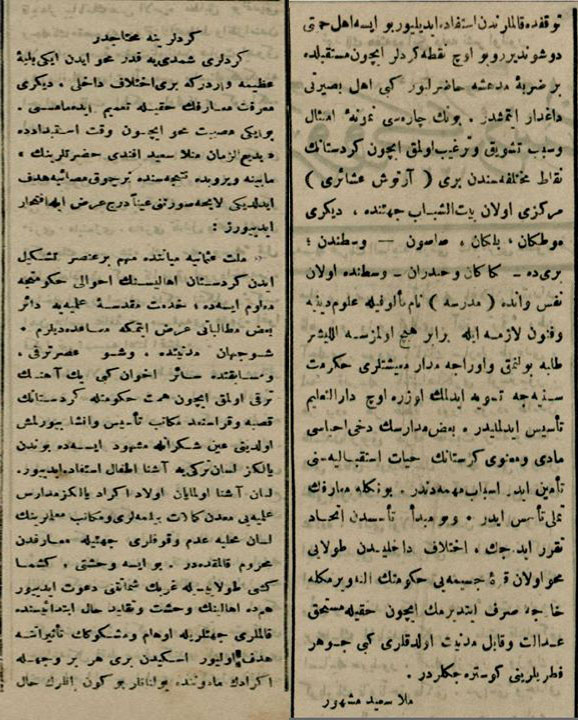 كردلر ينه محتاجدر
كردلری شمدی‌یه قدر محو ایدن ایكی بلیهٔ
عظیمه واردركه بری اختلاف داخلی . دیكری
معرفت معارفك حقیله تعمیم ایده‌مامسی .
بو ایكی مصیبت محو ایچون وقت استبدادده
بدیع الزمان ملا سعید افندی حضرتلرینك
مابینه ویروبده نتیجه‌سنده بر چوق مصائبه هدف
ایدلدیكی لایحه صورتنی عیناً درج عرض ایله افتخار
ایدییورز :
« ملت عثمانیه میاننده مهم بر عنصر تشكیل
ایدن كردستان اهالیسنك احوالی حكومتجه
معلوم ایسه‌ده ، خدمت مقدسهٔ علمیه‌یه دائر
بعض مطالباتی عرض ایتمكه مساعده دیلرم .
شو جهان مدنیتده ، وشو عصر ترقی .
ومسابقتده سائر اخوان كبی یك آهنك
ترقی اولمق ایچون همت حكومتله كردستانك
قصبه وقراسنده مكاتب تأسیس وانشا بیورلمش
اولدیغی عین شكرانله مشهود ایسه‌ده بوندن
یالكز لسان تركی‌یه آشنا اطفال استفاده ایدییور.
لسان آشنا اولمایان اولاد اكراد یالكز مدارس
علمیه‌یی معدن كمالات بیلمه‌لری ومكاتب معلمرینك
لسان محلیه عدم وقوفلری جهتیله معارفدن
محروم قالمقده‌در . بو ایسه وحشتی ، كشمـا
كشی طولاییسیله غربك شماتتی دعوت ایدییور
هم‌ده اهالینك وحشت وتقلید حال ابتدائیسنده
قالملری جهتلریله اوهام ومشكوكك تأثیراتنه
هدف اولیور اسكیدن بری هر بر وجهله
اكرادك مادوننده بولنانلر بو كون آنلرك حال
توقفده قالملرندن استفاده ایدیلیور بو ایسه اهل حمیتی
دوشوندیریر و بو اوچ نقطه كردلر ایچون مستقبلده
بر ضربهٔ مدهشه حاضرلیور كبی اهل بصیرتی
داغدار ایتمشدر . بونك چاره‌سی نمونهٔ امتثال
وسبب تشویق وترغیب اولمق ایچون كردستانك
نقاط مختلفه‌سندن بری ( آرتوش عشائری )
مركزی اولان بیت‌الشباب جهتنده ، دیكری
موطكان ، بلكان ، صاصون — وسطندن ؛
بری‌ده - كاكان وحیدران - وسطنده اولان
نفس وانده ( مدرسه ) نام مألوفیله علوم دینیه
وفنون لازمه ایله برابر هیچ اولمزسه اللیشر
طلبه بولنمق واوراجه مدار معیشتلری حكومت
سنیه‌جه تسویه ایدلمك اوزره اوچ دارالتعلیم
تأسیس ایدلمیدر . بعض مدارسك دخی احیاسی
مادی ومعنوی كردستانك حیات استقبالیه‌سنی
تأمین ایدر اسباب مهمه‌دندر . بونكله معارفك
تملی تأسس ایدر . وبو مبدأ تأسسدن اتحاد
تقرر ایده‌جك ، اختلاف داخلیدن طولایی
محو اولان قوهٔ جسیمه‌یی حكومتك الـنه ویرمكله
خارجه صرف ایتدیرمك ایچون حقیله مستحق
عدالت وقابل مدنیت اولدقلری كبی جوهر
فطریلرینی كوستره جكلردر .
ملا سعید مشهور